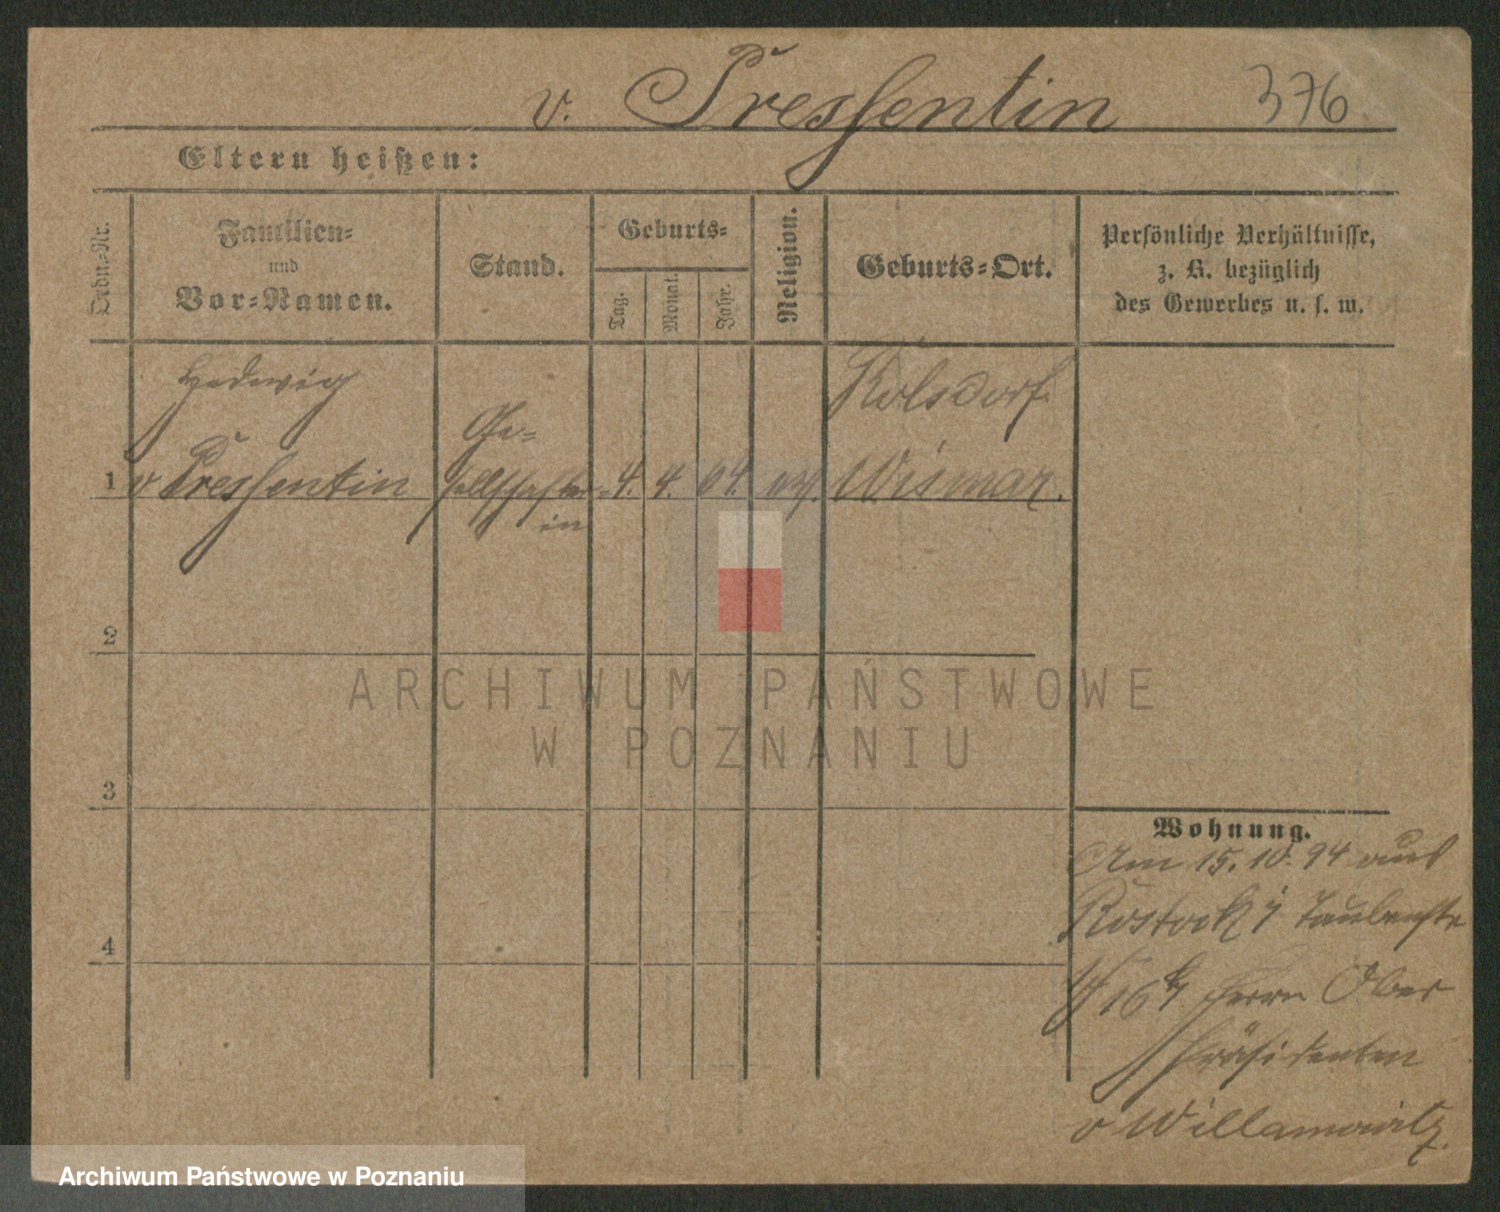 v. Pressentin 376
Eltern heißen:
Ordn.-Nr.
Familien-
und
Vor-Namen.
Stand.
Geburts-
Tag.
Monat.
Jahr.
Religion.
Geburts-Ort.
Persönliche Verhältnisse,
z. B. bezüglich
des Gewerbes u. s. w.
Hedwig
Ge-
1 v Pressentin sellschafter- 4. 4. 64. ev. Wismar.
in
2
3
4
Wohnung.
Am 15. 10. 94 aus
Rostock
16 Herrn Ober
Präsidenten
v Willamowitz.
ARCHIWUM PAŃSTWOWE
W POZNANIU
Archiwum Państwowe w Poznaniu